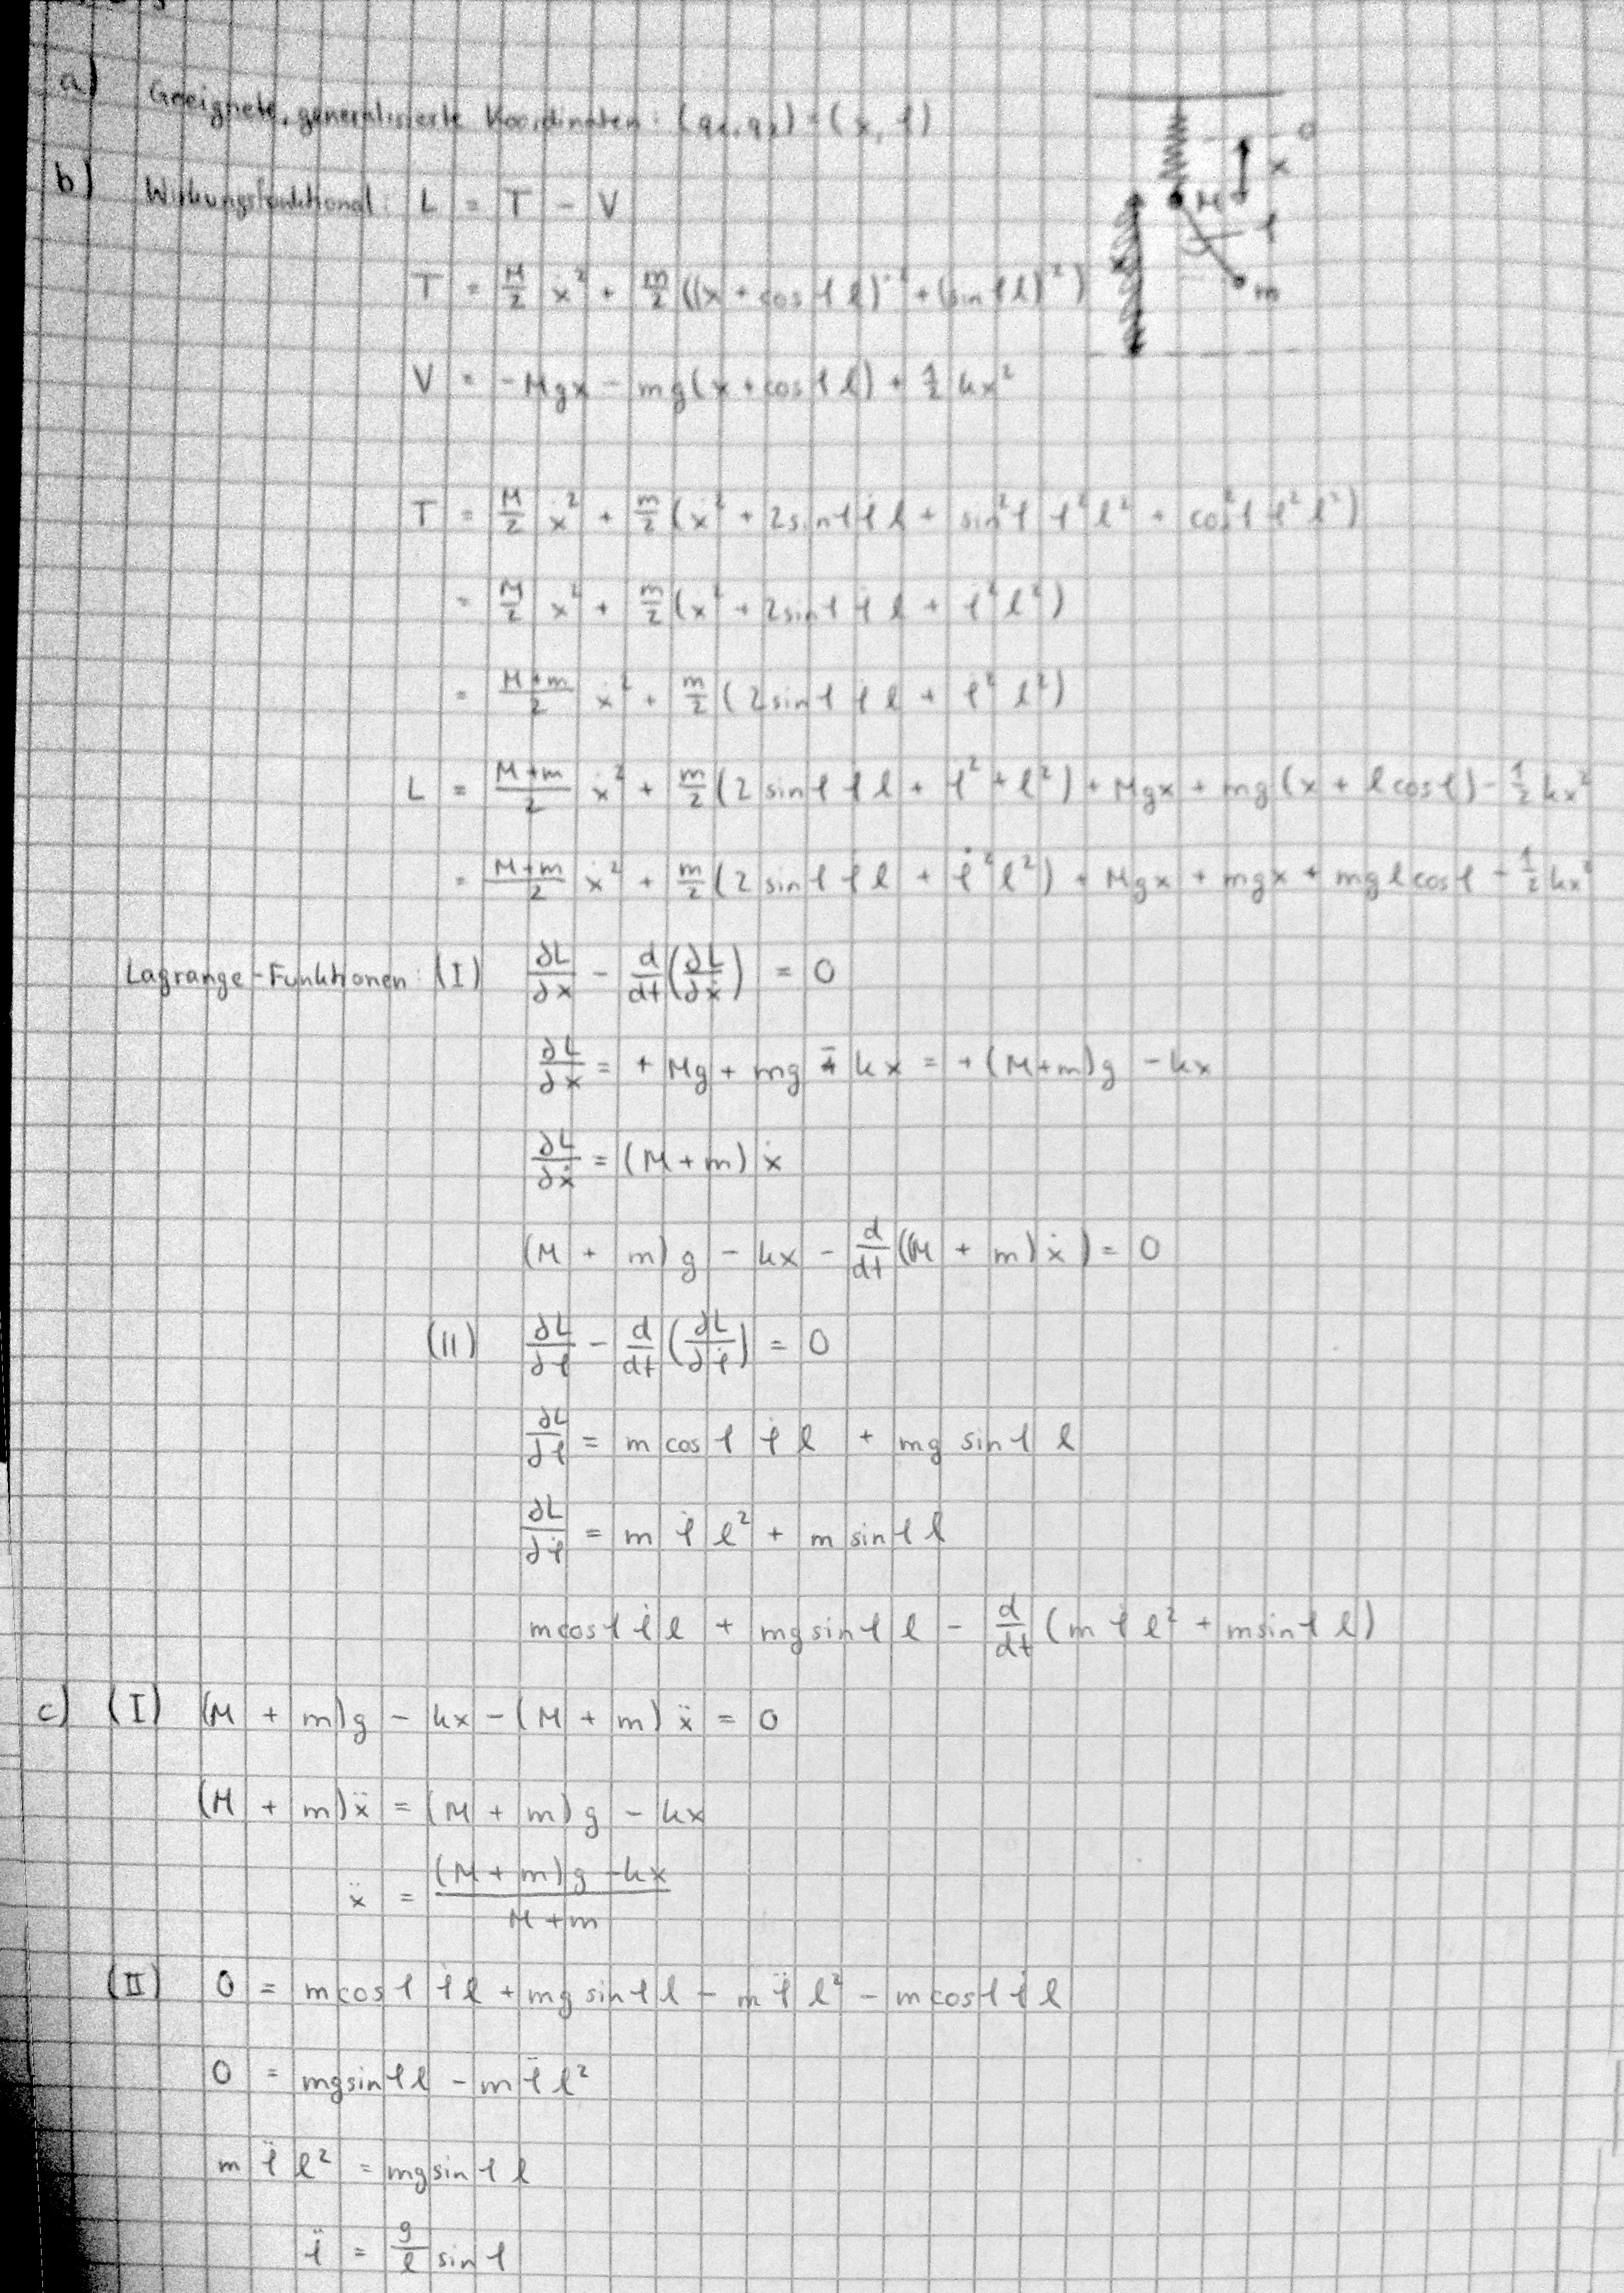 a) Geeignete, generalisierte Koordinaten: (q₁, q₂) = (x, φ)
0
x
M
φ
m
b) Wirkungsfunktional: L = T - V
T = M/2 ẋ² + m/2 ((x + cos φ l)˙² + (sin φ l)˙²)
V = -Mgx - mg(x + cos φ l) + 1/2 kx²
T = M/2 ẋ² + m/2 (ẋ² + 2 sin φ φ̇ l + sin² φ φ̇² l² + cos² φ φ̇² l²)
= M/2 ẋ² + m/2 (ẋ² + 2 sin φ φ̇ l + φ̇² l²)
= (M+m)/2 ẋ² + m/2 (2 sin φ φ̇ l + φ̇² l²)
L = (M+m)/2 ẋ² + m/2 (2 sin φ φ̇ l + φ̇² + l²) + Mgx + mg (x + l cos φ) - 1/2 kx²
= (M+m)/2 ẋ² + m/2 (2 sin φ φ̇ l + φ̇² l²) + Mgx + mgx + mgl cos φ - 1/2 kx²
Lagrange-Funktionen: (I) ∂L/∂x - d/dt (∂L/∂ẋ) = 0
∂L/∂x = + Mg + mg - kx = + (M+m)g - kx
∂L/∂ẋ = (M+m) ẋ
(M + m) g - kx - d/dt ((M + m) ẋ) = 0
(II) ∂L/∂φ - d/dt (∂L/∂φ̇) = 0
∂L/∂φ = m cos φ φ̇ l + mg sin φ l
∂L/∂φ̇ = m φ̇ l² + m sin φ l
m cos φ φ̇ l + mg sin φ l - d/dt (m φ̇ l² + m sin φ l)
c) (I) (M + m)g - kx - (M + m) ẍ = 0
(M + m) ẍ = (M + m) g - kx
ẍ = ((M + m)g - kx)/(M + m)
(II) 0 = m cos φ φ̇ l + mg sin φ l - m φ̈ l² - m cos φ φ̇ l
0 = mg sin φ l - m φ̈ l²
m φ̈ l² = mg sin φ l
φ̈ = g/l sin φ